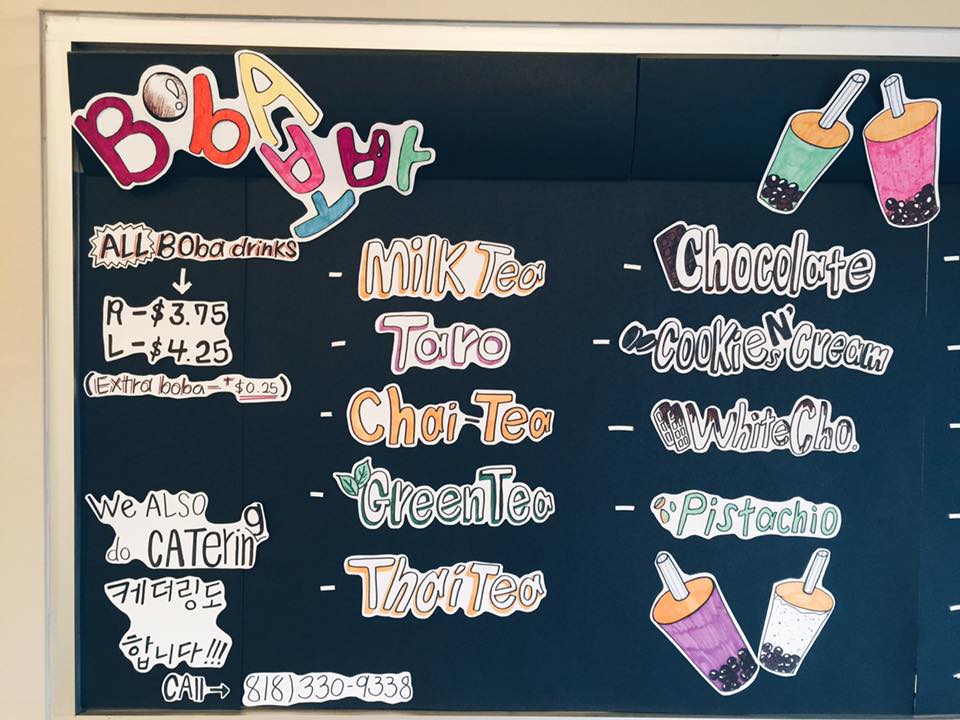 BobA
보바
ALL BOba drinks
R - $3.75
L - $4.25
(Extra boba = + $0.25)
We ALSO
do CATering
케더링도
합니다!!!
CAll → 818)330-9338
- Milk Tea
- Taro
- Chai-Tea
- Green Tea
- Thai Tea
- Chocolate
- Cookies N' Cream
- White Cho.
- Pistachio